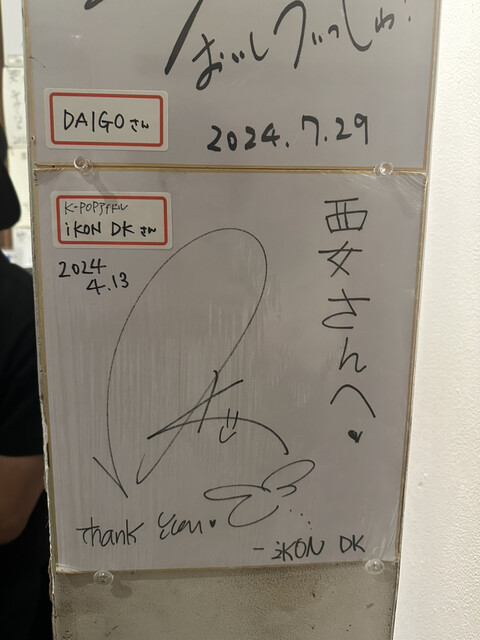 おいしウィッシュ!
DAIGOさん
2024.7.29
K-POPアイドル
iKON DKさん
2024
4.13
西女さんへ♥
thank you♥
- iKON DK